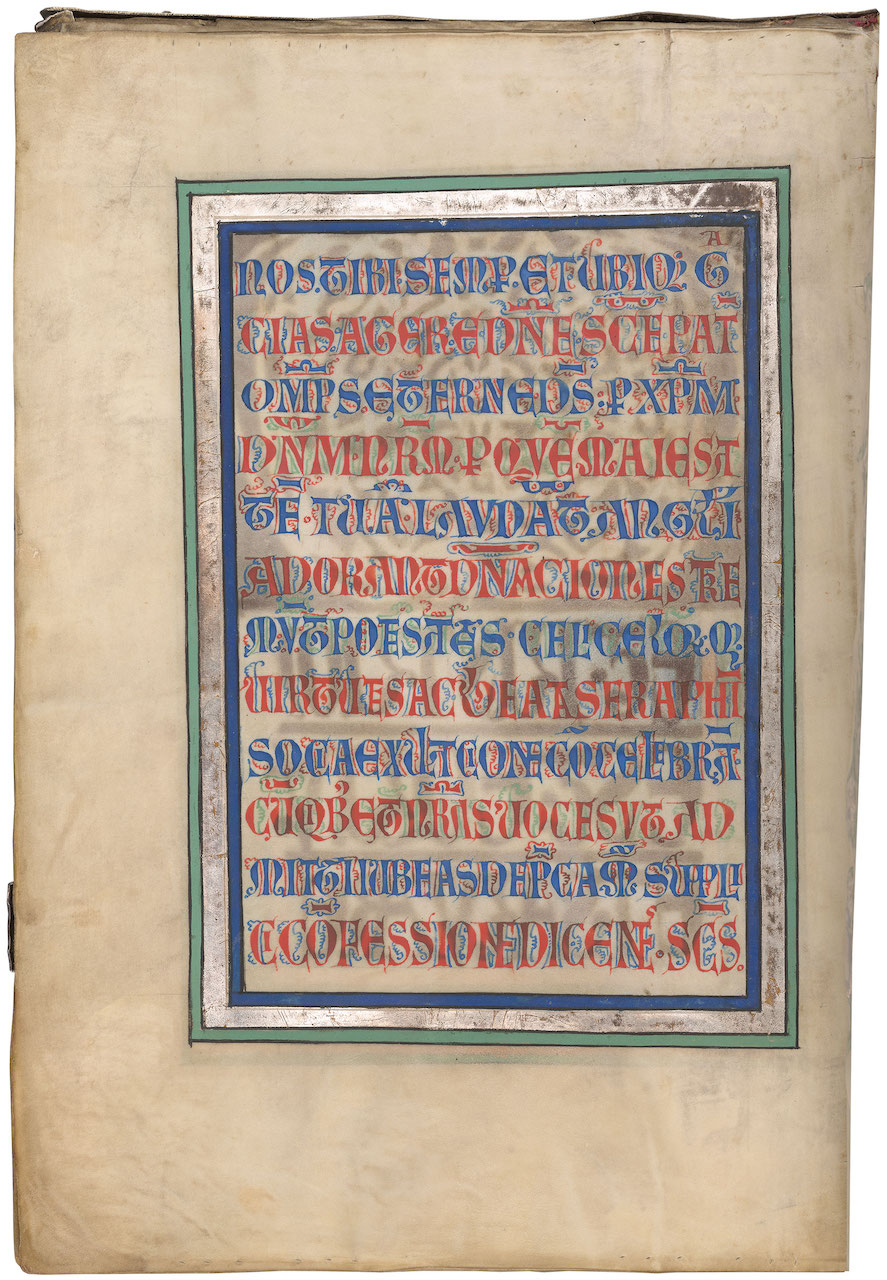 NOS·TIBI·SEMP·ET UBIQ; G̃A
CIAS AGERE·DÑE SCE PAT
OMPS ETERNE DS: P XPM
DNM·NRM·P QVE MAIEST
TE TUA LAVDAT ANGLI
ADORANT DNACIONES TRE
MVT POESTATES· CELI CELORQ;
VIRTUTES AC BEATA SERAPHI
SOCIA EXULTCIONE COCELEBRT
CU QIB; ET NRAS VOCES VT AD
MITTI IUBEAS DEPCAM SUPPLI
CI COFESSIONE DICENTE· SCS.